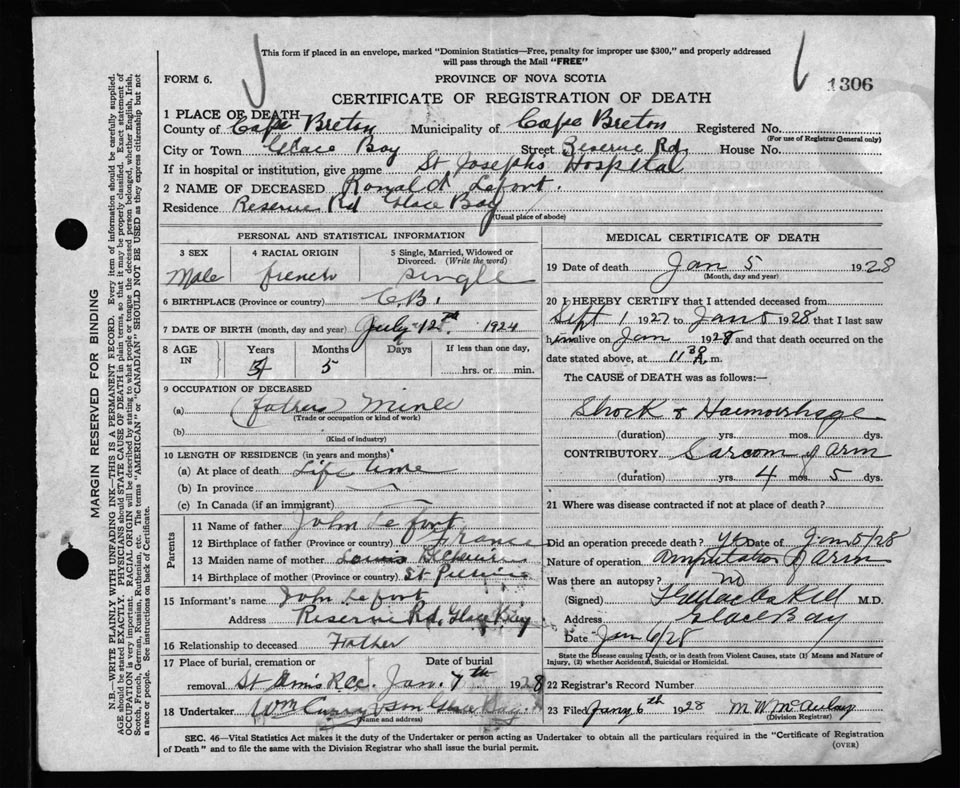 This form if placed in an envelope, marked "Dominion Statistics—Free, penalty for improper use $300," and properly addressed
will pass through the Mail "FREE"
FORM 6.
PROVINCE OF NOVA SCOTIA
1306
CERTIFICATE OF REGISTRATION OF DEATH
1 PLACE OF DEATH
County of Cape Breton Municipality of Cape Breton Registered No.
(For use of Registrar General only)
City or Town Glace Bay Street Reserve Rd. House No.
If in hospital or institution, give name St Josephs Hospital
2 NAME OF DECEASED Ronald Lefort.
Residence Reserve Rd Glace Bay
(Usual place of abode)
PERSONAL AND STATISTICAL INFORMATION
3 SEX 4 RACIAL ORIGIN 5 Single, Married, Widowed or
Divorced. (Write the word)
Male french single
6 BIRTHPLACE (Province or country) C.B.
7 DATE OF BIRTH (month, day and year) July 12th. 1924
8 AGE
IN
Years Months Days If less than one day,
5
hrs. or min.
9 OCCUPATION OF DECEASED
(a) (fathers) Miner
(Trade or occupation or kind of work)
(b)
(Kind of industry)
10 LENGTH OF RESIDENCE (in years and months)
(a) At place of death Life time
(b) In province
(c) In Canada (if an immigrant)
Parents
11 Name of father John Lefort
12 Birthplace of father (Province or country) France
13 Maiden name of mother
14 Birthplace of mother (Province or country) St
15 Informant's name John Lefort
Address Reserve Rd, Glace Bay
16 Relationship to deceased Father
17 Place of burial, cremation or Date of burial
removal St Ann's Jan. 7th 1928
18 Undertaker Wm Curry & Son Glace Bay.
(Name and address)
MEDICAL CERTIFICATE OF DEATH
19 Date of death Jan 5 1928
(Month, day and year)
20 I HEREBY CERTIFY that I attended deceased from
Sept 1 1927 to Jan 5 1928 that I last saw
him alive on Jan 1928 and that death occurred on the
date stated above, at 11 m.
The CAUSE of DEATH was as follows:—
Shock & Haemorrhage
(duration) yrs. mos. dys.
CONTRIBUTORY Sarcom of arm
(duration) yrs. 4 mos. 5 dys.
21 Where was disease contracted if not at place of death?
Did an operation precede death? yes Date of Jan 5/28
Nature of operation amputation of arm
Was there an autopsy? no
(Signed) M.D.
Address Glace Bay
Date Jan 6/28
State the Disease causing Death, or in death from Violent Causes, state (1) Means and Nature of
Injury, (2) whether Accidental, Suicidal or Homicidal.
22 Registrar's Record Number
23 Filed Jany 6th 1928 M W McAulay
(Division Registrar)
SEC. 46—Vital Statistics Act makes it the duty of the Undertaker or person acting as Undertaker to obtain all the particulars required in the "Certificate of Registration
of Death" and to file the same with the Division Registrar who shall issue the burial permit.
(OVER)
MARGIN RESERVED FOR BINDING
N.B.—WRITE PLAINLY WITH UNFADING INK—THIS IS A PERMANENT RECORD. Every item of information should be carefully supplied.
AGE should be stated EXACTLY. PHYSICIANS should STATE CAUSE OF DEATH in plain terms, so that it may be properly classified. Exact statement of
OCCUPATION is very important. RACIAL ORIGIN will be described by stating to what people or tongue the deceased person belonged, whether English, Irish,
Scotch, French, German, Russian, Ruthenian, etc. The terms "AMERICAN" or "CANADIAN" SHOULD NOT BE USED as they express citizenship but not
a race or people. See instructions on back of Certificate.